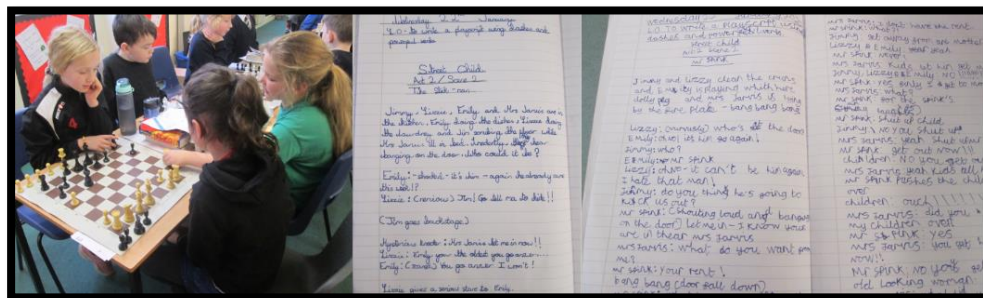 Wednesday 22nd January
L.O. To write a playscript using brackets and
powerful verbs
Street Child
Act 2 / Scene 2
The
Jimmy, Lizzie, Emily and Mrs Jarvis are in
the kitchen. Emily doing the dishes, Lizzie doing
the laundrey and Jim scrubing the floor while
Mrs Jarvis ill in bed. Sudenly they hear
banging on the door. Who could it be?
Emily: - shocked - it's him - again the already came
this week!?
Lizzie: (Curious) Jim! Go tell ma to hide!!
(Jim goes backstage)
Mysterious knocker: Mrs Jarvis let me in now!!
Lizzie: Emily your the oldest you go answer
Emily: (scared) You go answer I won't!
Lizzie gives a serious stare to Emily.
wednesday
L.O. TO write a playscript with
dashes and powerful verbs
street child
act 2 scene 2
mr spink
Jimmy and Lizzy clean the
and Emily is playing with her
dolly peg and mrs Jarvis is lying
by the fire place - bang bang bang
Lizzy: (nervously) who's at the door
Emily: oh - its him so again!
Jimmy: who?
Emily: mr spink
Lizzy: oh no - it can't be him again
I hate that man!
Jimmy: do you thing he's going to
KICK us out?
mr spink: (shouting loud and banging
on the door) Let me in - I know your
are in thear mrs Jarvis
mrs Jarvis: What do you want from
me?
mr spink: Your rent!
bang bang (door fall down)
mrs Jarvis: I don't have the rent
mr spink: what??
Jimmy: get away from are mother
Lizzy & Emily: yeah
mr spink: never
mrs Jarvis: Kids let him get
Jimmy, Lizzy & Emily: NO
mr spink: yes only I get
mrs Jarvis: what?
mr spink: for the spink's
mr spink: Shut up child
Jimmy: No you shut up
mrs Jarvis: yeah shut up
mr spink: get out now!!!
children: NO you get out
mrs Jarvis: yeah kids tell
mr spink pushes the child
over
children: ouch!!!
mrs Jarvis: did you
my children over
mr spink: yes
mrs Jarvis: you get
now!!
Mr spink: NO you
old looking woman